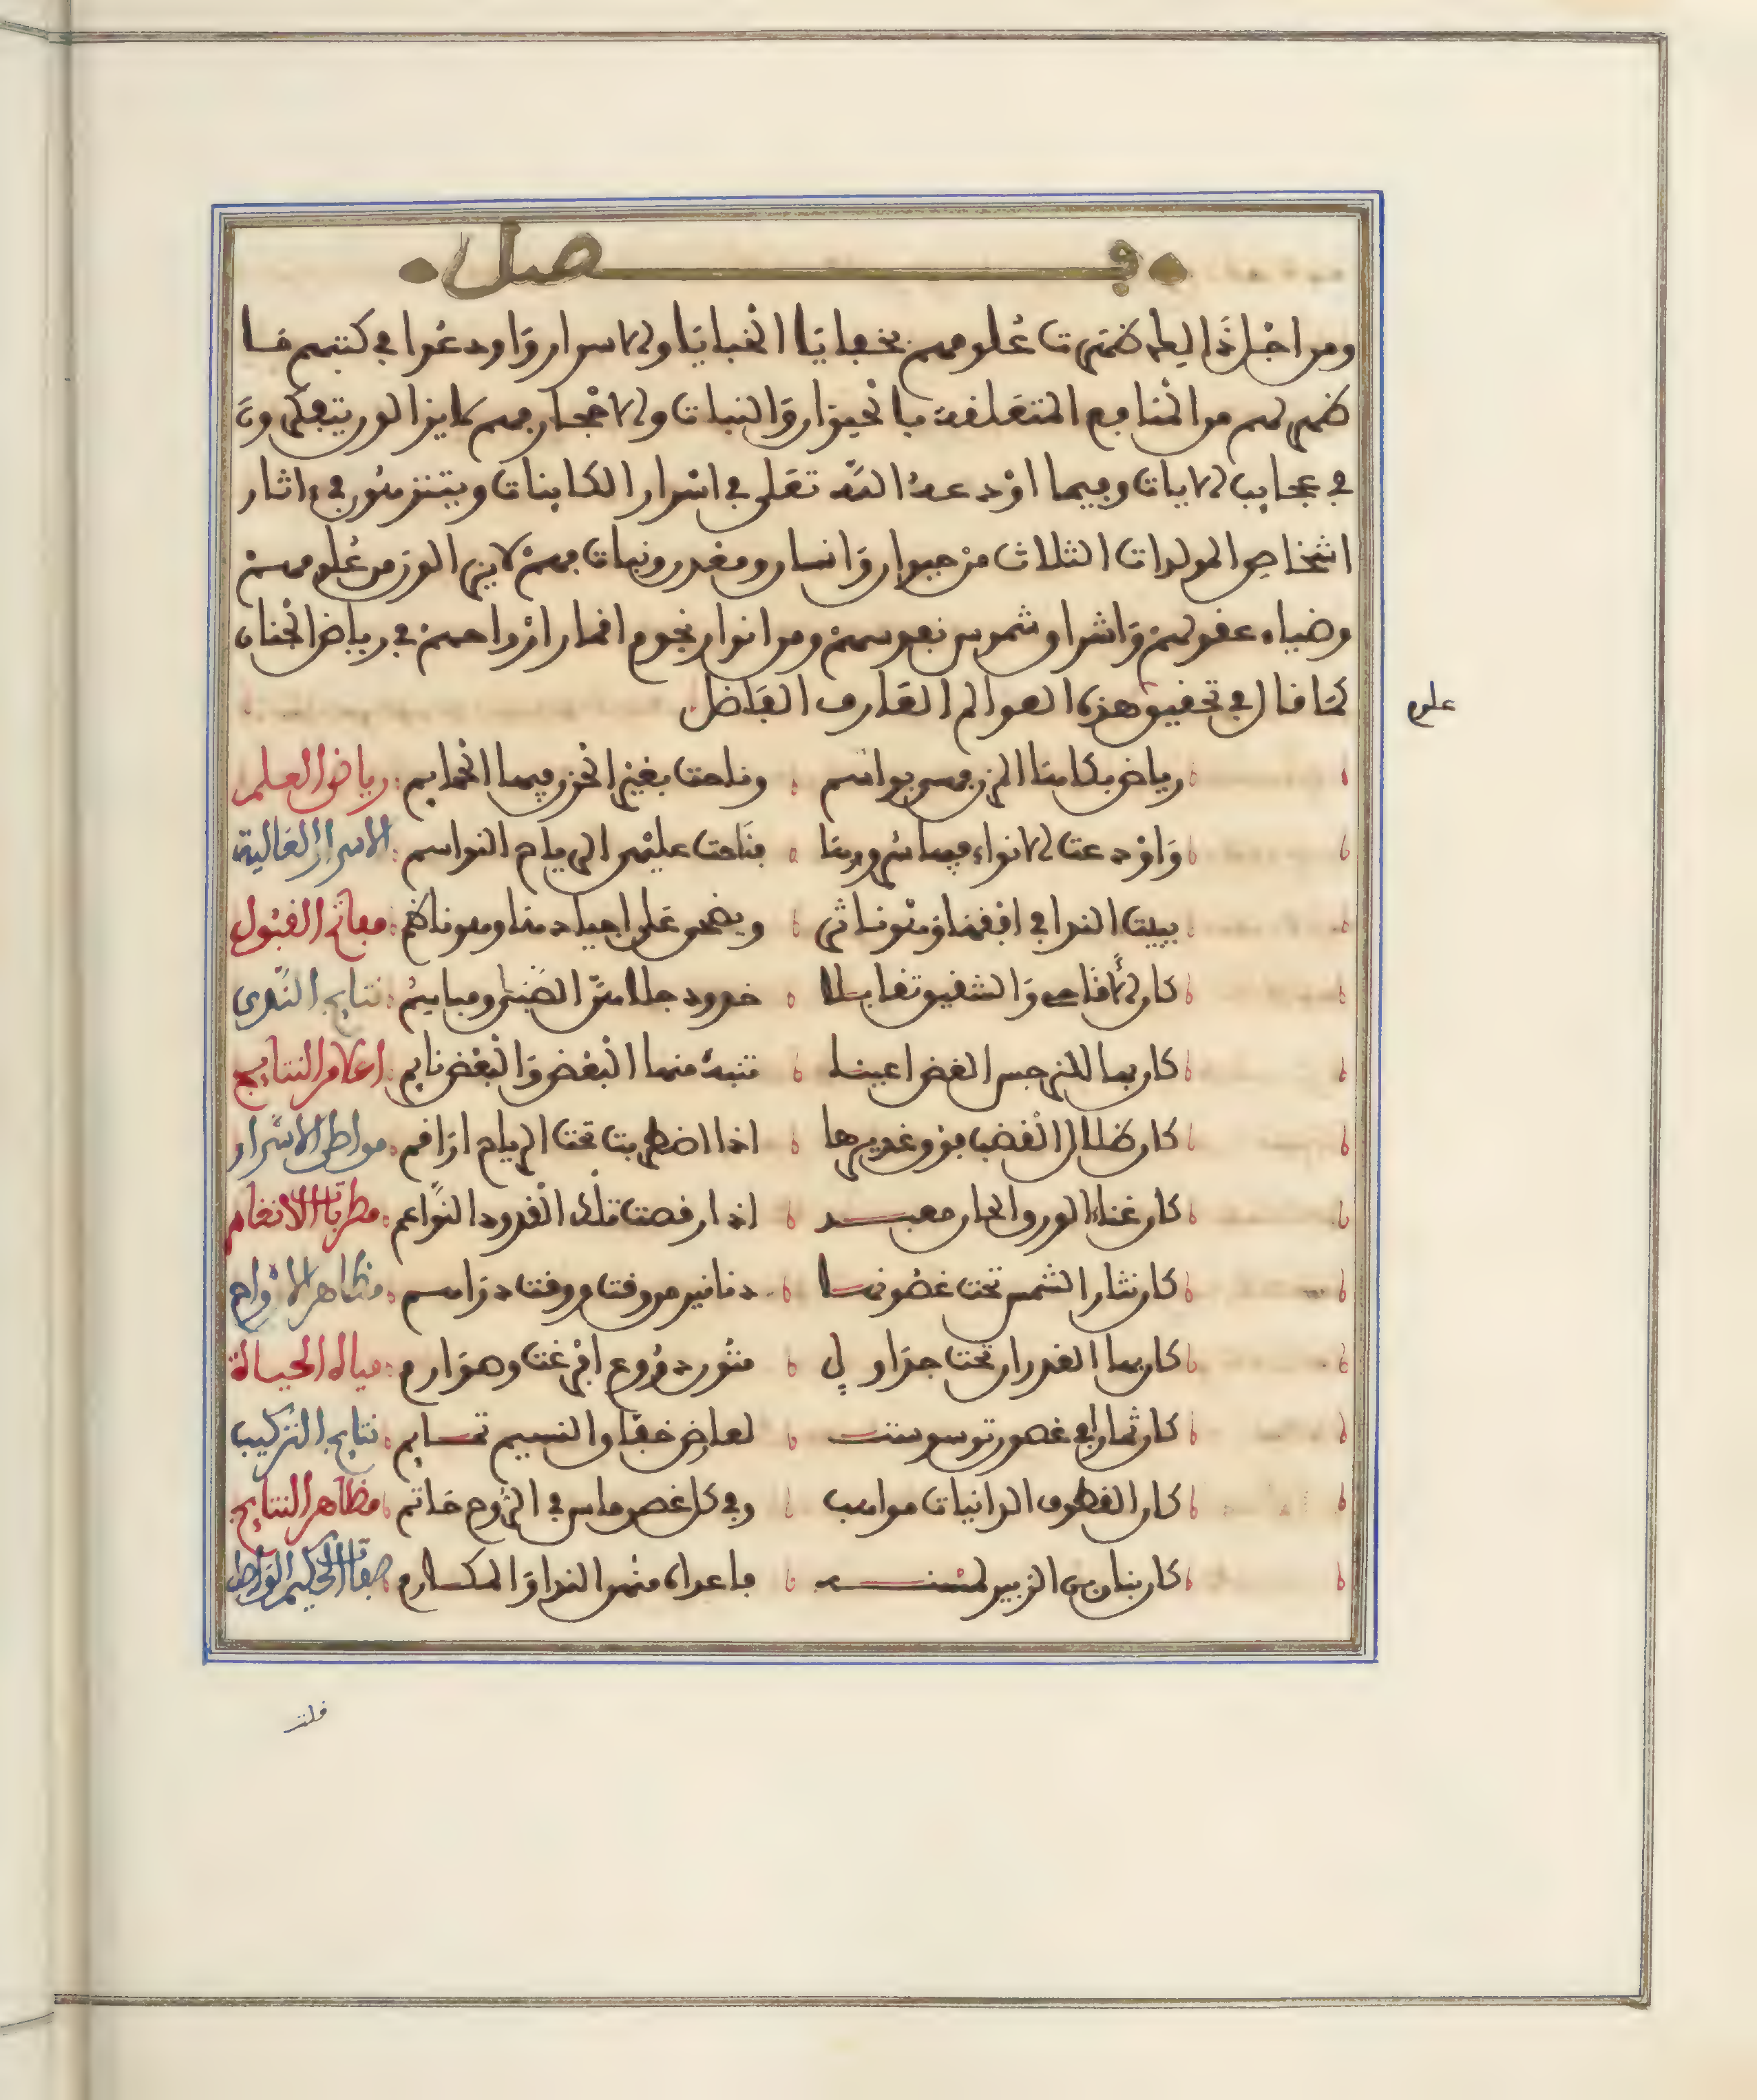 فصل
ومن اجل ذالك ظهرت علومهم بخفايا الخبايا والاسرار واودعوا في كتبهم ما
ظهر لهم من المنافع المتعلقة بالحيوان والنبات والاحجار فهم لا يزالون يتفكرون
في عجايب الايات وفيما اودعه الله تعلى في اسرار الكاينات ويتنزهون في ءاثار
اشخاص المولدات الثلاث من حيوان وانسان ومعدن ونبات فهم لا يزالون من علومهم
وضياء عقولهم واشراق شموس نفوسهم ومن انوار نجوم اقمار ارواحهم في رياض الجنان
كما قال في تحقيق هذه العوالم العارف الفاضل
علوم
رياض بكاها المزن فهي بواسم وناحت بغير الحزن فيها الحمايم رياض العلم
واودعت الانواء فيها سرورها فناحت عليهن الرياح النواسم الاسرار العالية
يبيت الندا في افقها وهو ناثر ويضحى على اجيادها وهو ناظم مفاتح القبول
كان الاقاحي والشقيق تقابلا خدود جلاهن الصبى ومباسم نتايج الندى
كان بها للنرجس الغض اعينا تنبه منها البعض والبعض نايم اعلام النتايج
كان ظلال القضب فوق غديرها اذا اضطربت تحت الرياح اراقم مواطن الاسرار
كان غناء الورق الحان معبد اذا رقصت تلك القدود النواعم مطربات الانغام
كان نثار الشمس تحت غصونها دنانير من وقت ووقت دراهم مظاهر الارواح
كان بها الغدران تحت جداول متون دروع افرغت وصوارم مياه الحياة
كان ثمارا في غصون توسوست لعارض خفاق النسيم تمايم نتايج التركيب
كان القطوف الدانيات مواهب وفي كل غصن ماس في الدوح حاتم مظاهر النتايج
كان بنان من الزبير لمثنه ماعداه منهن الندا والمكارم صفات الحكيم الواصل
فلت